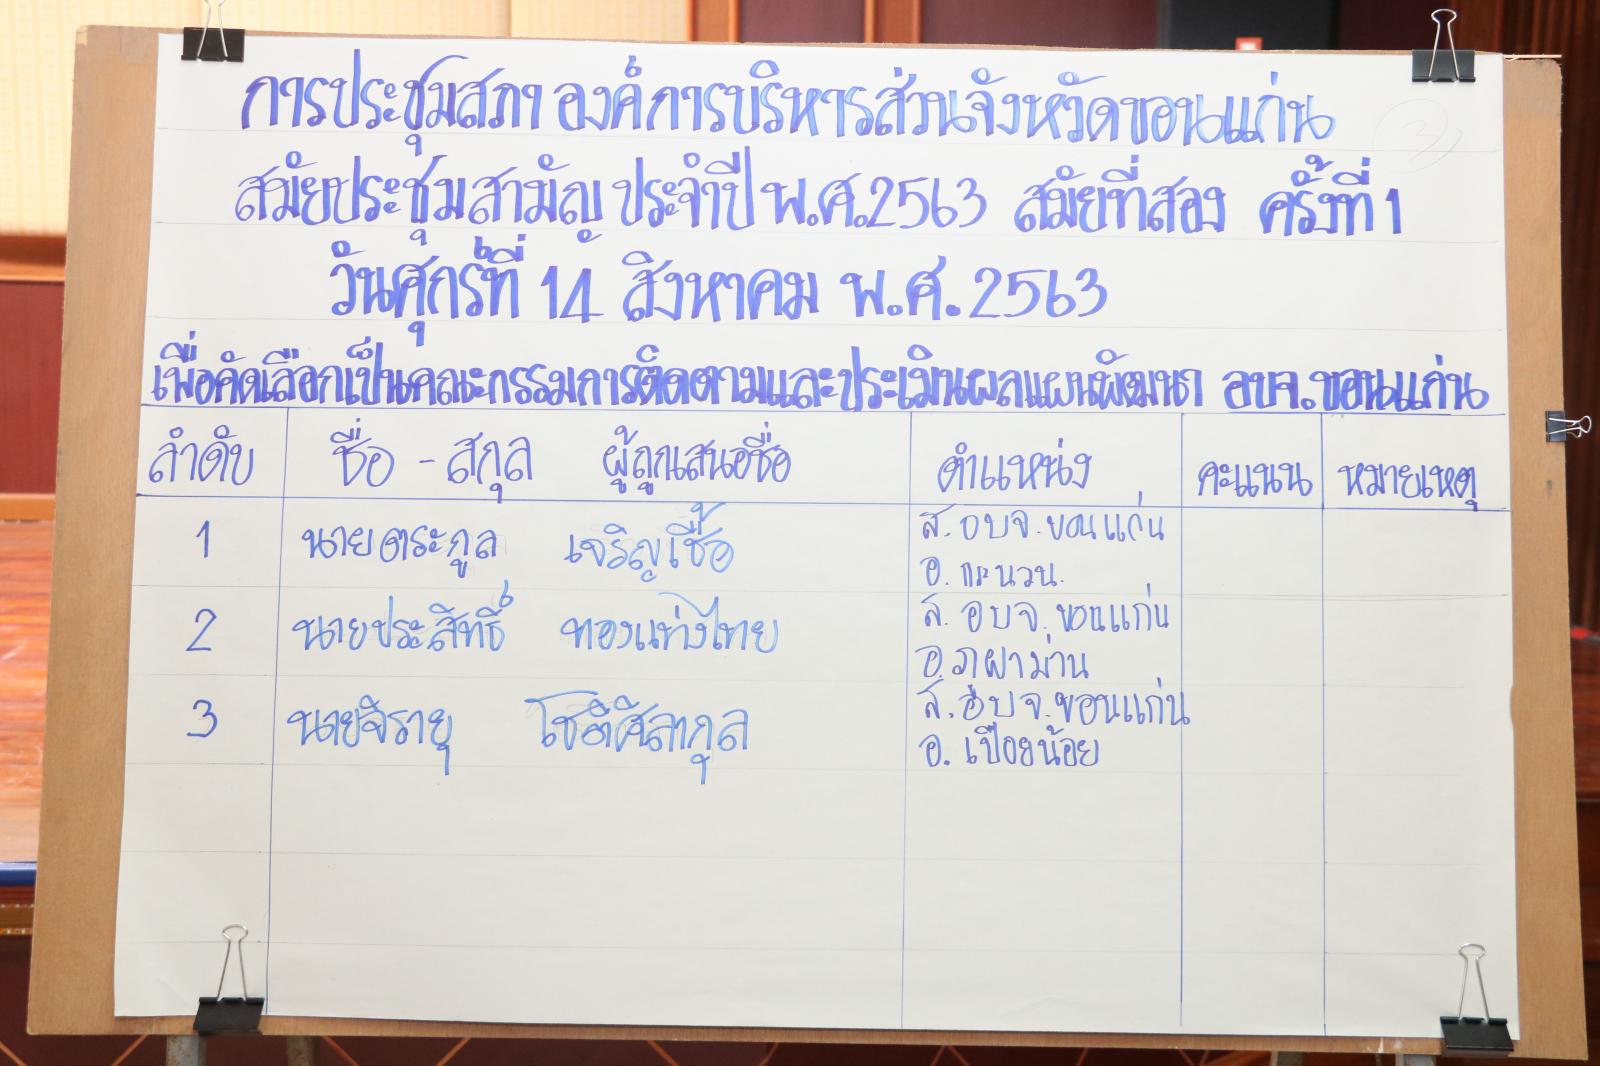 การประชุมสภา องค์การบริหารส่วนจังหวัดขอนแก่น
สมัยประชุมสามัญ ประจำปี พ.ศ.2563 สมัยที่สอง ครั้งที่ 1
วันศุกร์ที่ 14 สิงหาคม พ.ศ. 2563
เพื่อคัดเลือกเป็นคณะกรรมการติดตามและประเมินผลแผนพัฒนา อบจ.ขอนแก่น
ลำดับ ชื่อ - สกุล ผู้ถูกเสนอชื่อ ตำแหน่ง คะแนน หมายเหตุ
1 นายตระกูล เจริญเชื้อ ส.อบจ.ขอนแก่น
อ. กระนวน.
2 นายประสิทธิ์ ทองแท่งไทย ส.อบจ.ขอนแก่น
อ.ภูผาม่าน
3 นายจิรายุ โชติศิลากุล ส.อบจ.ขอนแก่น
อ. เปือยน้อย